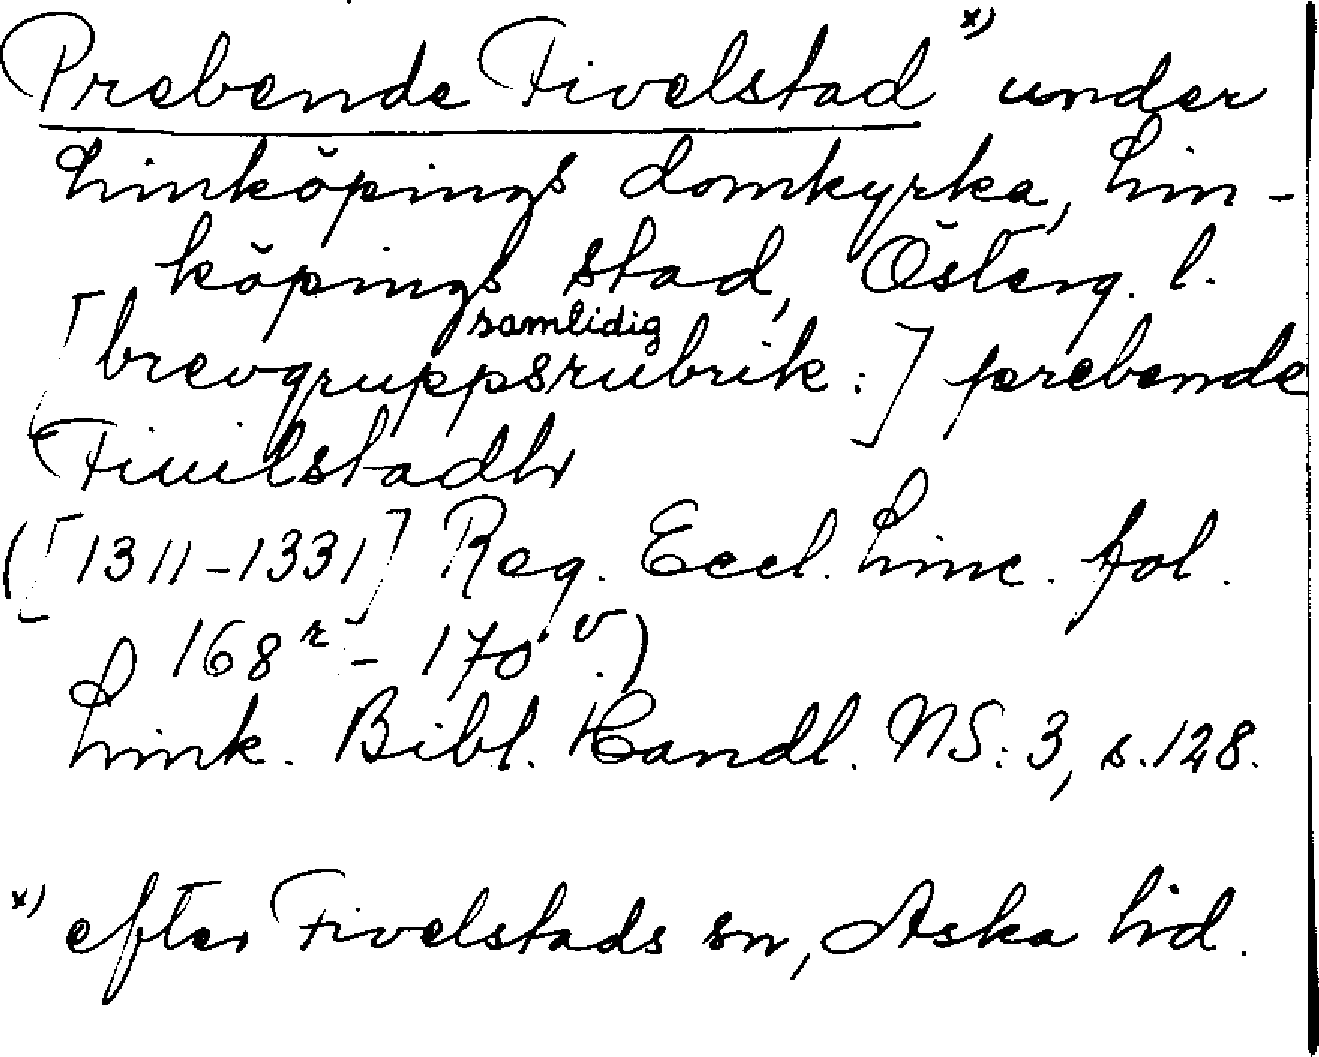 Prebende Fivelstad x) under
Linköpings domkyrka, Lin-
köpings stad, Österg. l.
samtidig
[brevgruppsrubrik:] prebende
Fiuilstadh
([1311-1331] Reg. Eccl. Linc. fol.
168r - 170v.)
Link. Bibl. Handl. NS: 3, s. 128.
x) efter Fivelstads sn, Aska hd.